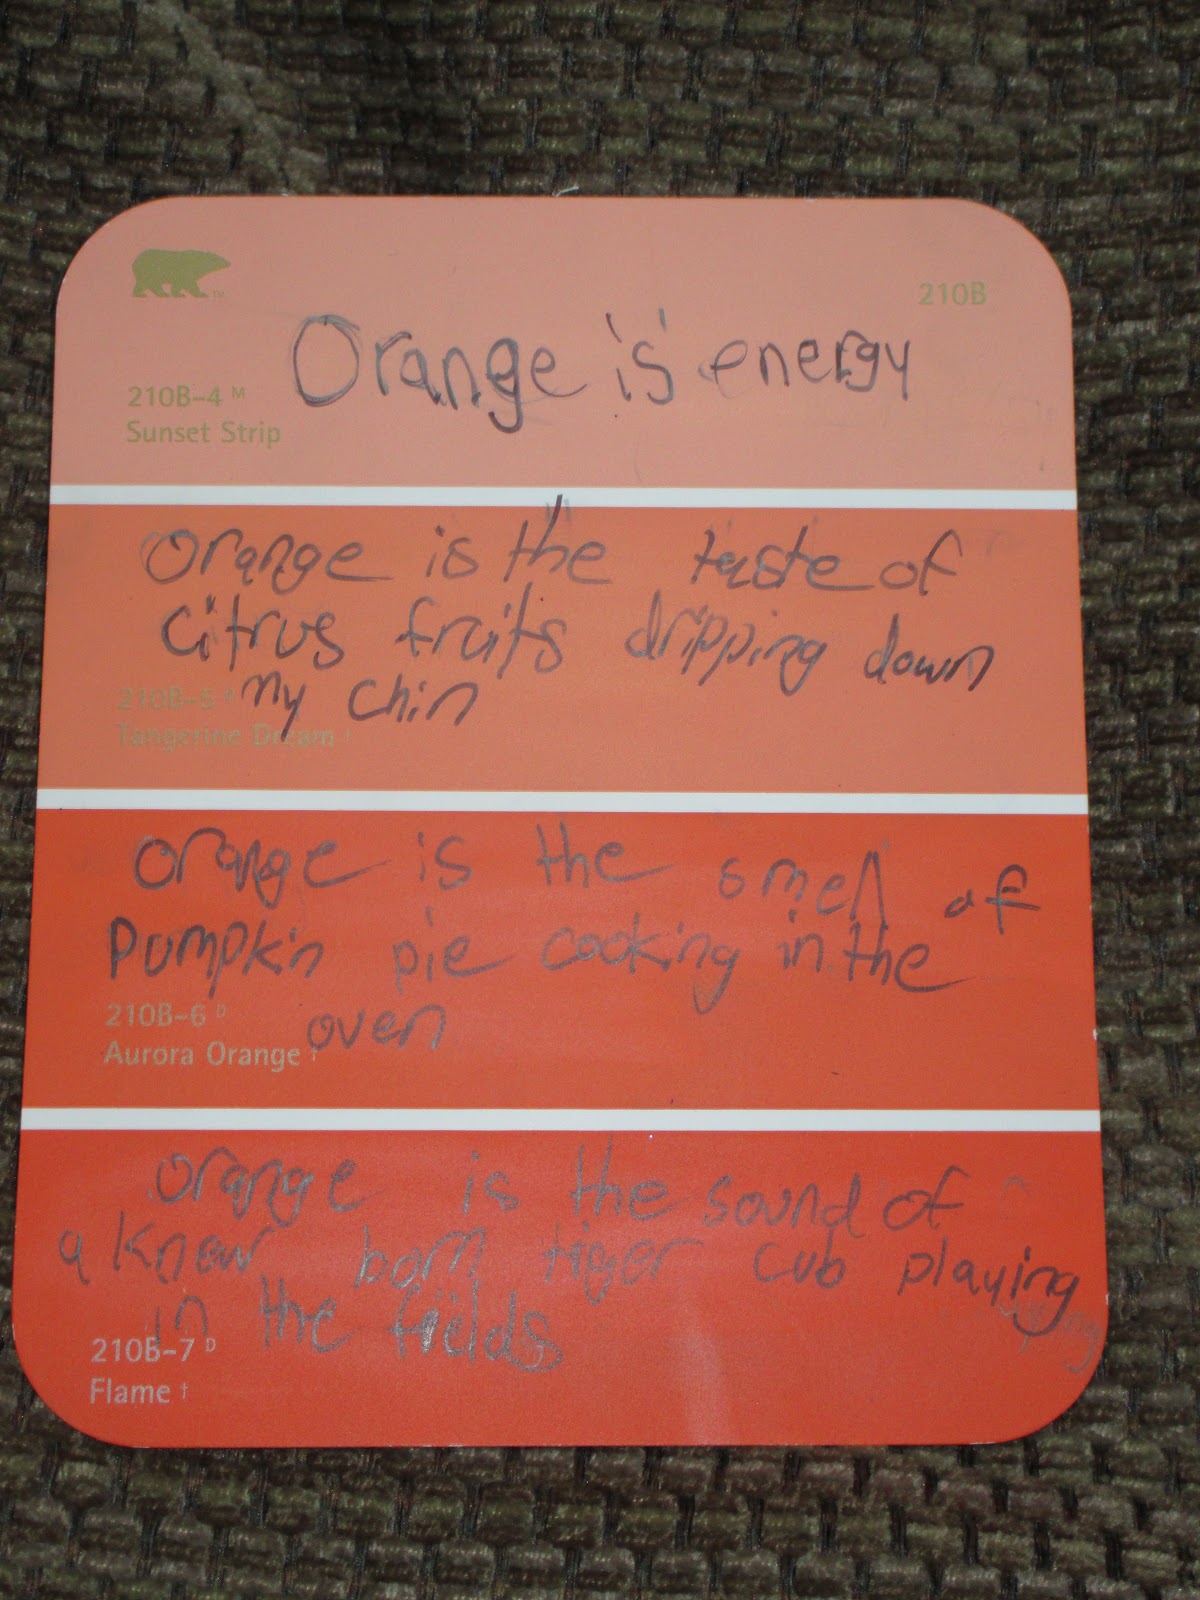 210B
Orange is energy
210B-4 M
Sunset Strip
Orange is the taste of
citrus fruits dripping down
my chin
210B-5
Tangerine Dream †
Orange is the smell of
Pumpkin pie cooking in the
oven
210B-6 D
Aurora Orange †
Orange is the sound of
a Knew born tiger cub playing
in the fields
210B-7 D
Flame †